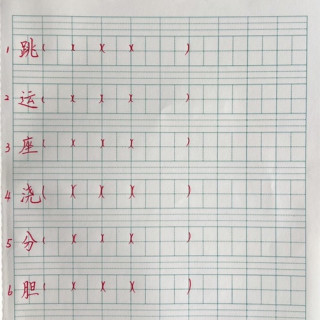 1 跳( )( )( )( )
2 运( )( )( )( )
3 座( )( )( )( )
4 浇( )( )( )( )
5 分( )( )( )( )
6 胆( )( )( )( )